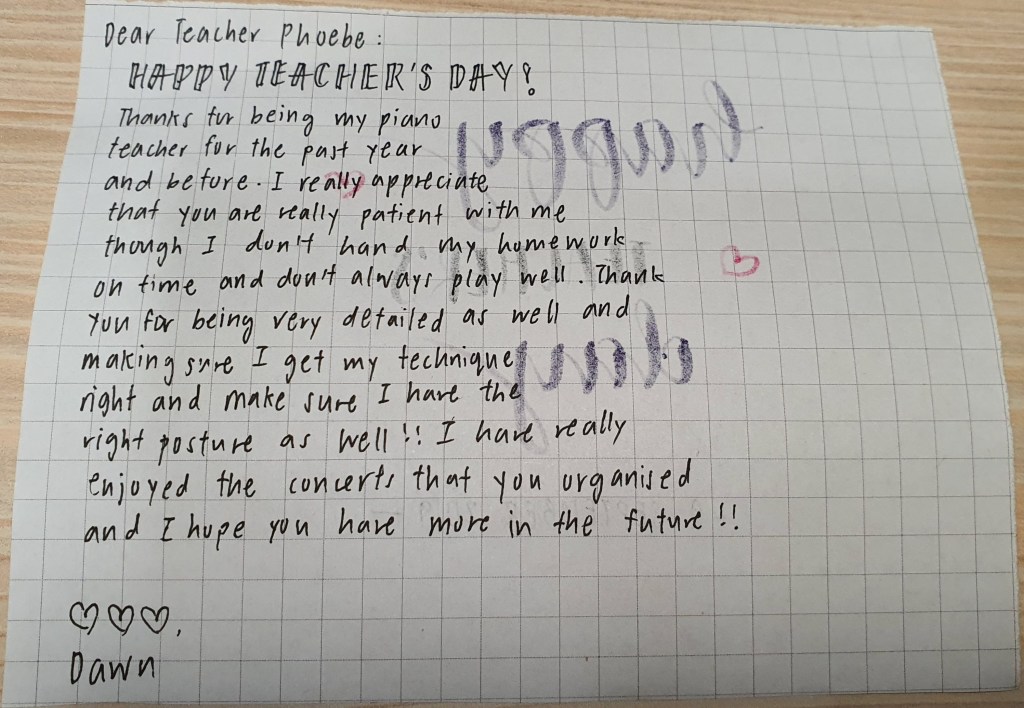 Dear Teacher Phoebe :
HAPPY TEACHER'S DAY!
Thanks for being my piano
teacher for the past year
and before. I really appreciate
that you are really patient with me
though I don't hand my homework
on time and don't always play well. Thank
you for being very detailed as well and
making sure I get my technique
right and make sure I have the
right posture as well!! I have really
enjoyed the concerts that you organised
and I hope you have more in the future!!
♡♡♡,
Dawn
happy
TEACHER'S
day